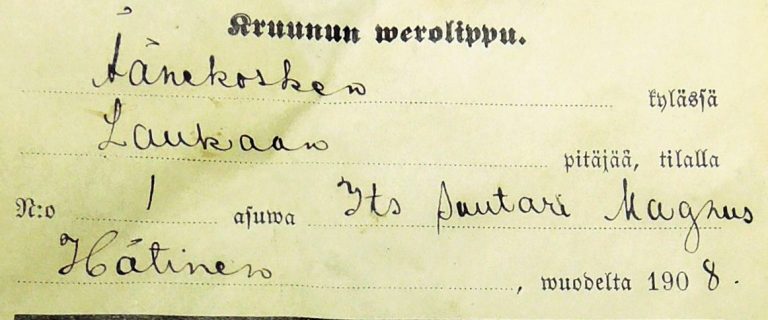 Kruunun werolippu.
Äänekosken kylässä
Laukaan pitäjää, tilalla
N:o 1 asuwa Its Suutari Magnus
Hätinen, wuodelta 1908.